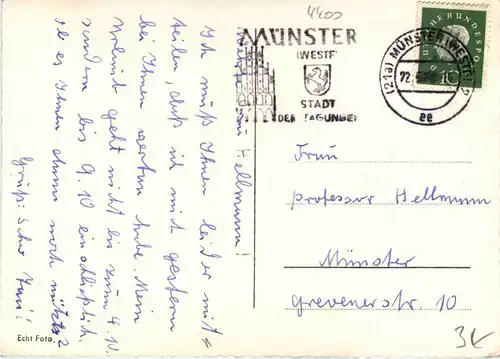 4400
MÜNSTER
(WESTF)
STADT
DER TAGUNGEN
DEUTSCHE BUNDESPOST
10
(21a) MÜNSTER (WESTF) 2
22.
ee
Frau Hellmann!
Ich muß Ihnen leider mit=
teilen, daß ich mich gestern
bei Ihnen vertan habe. Mein
geht nicht bis zum 4.10.
sondern bis 9.10 einschließlich.
ob es Ihnen dann noch nützt?
Gruß: Ihr
Frau
Professor Hellmann
Münster
Grevenerstr. 10
Echt Foto
3